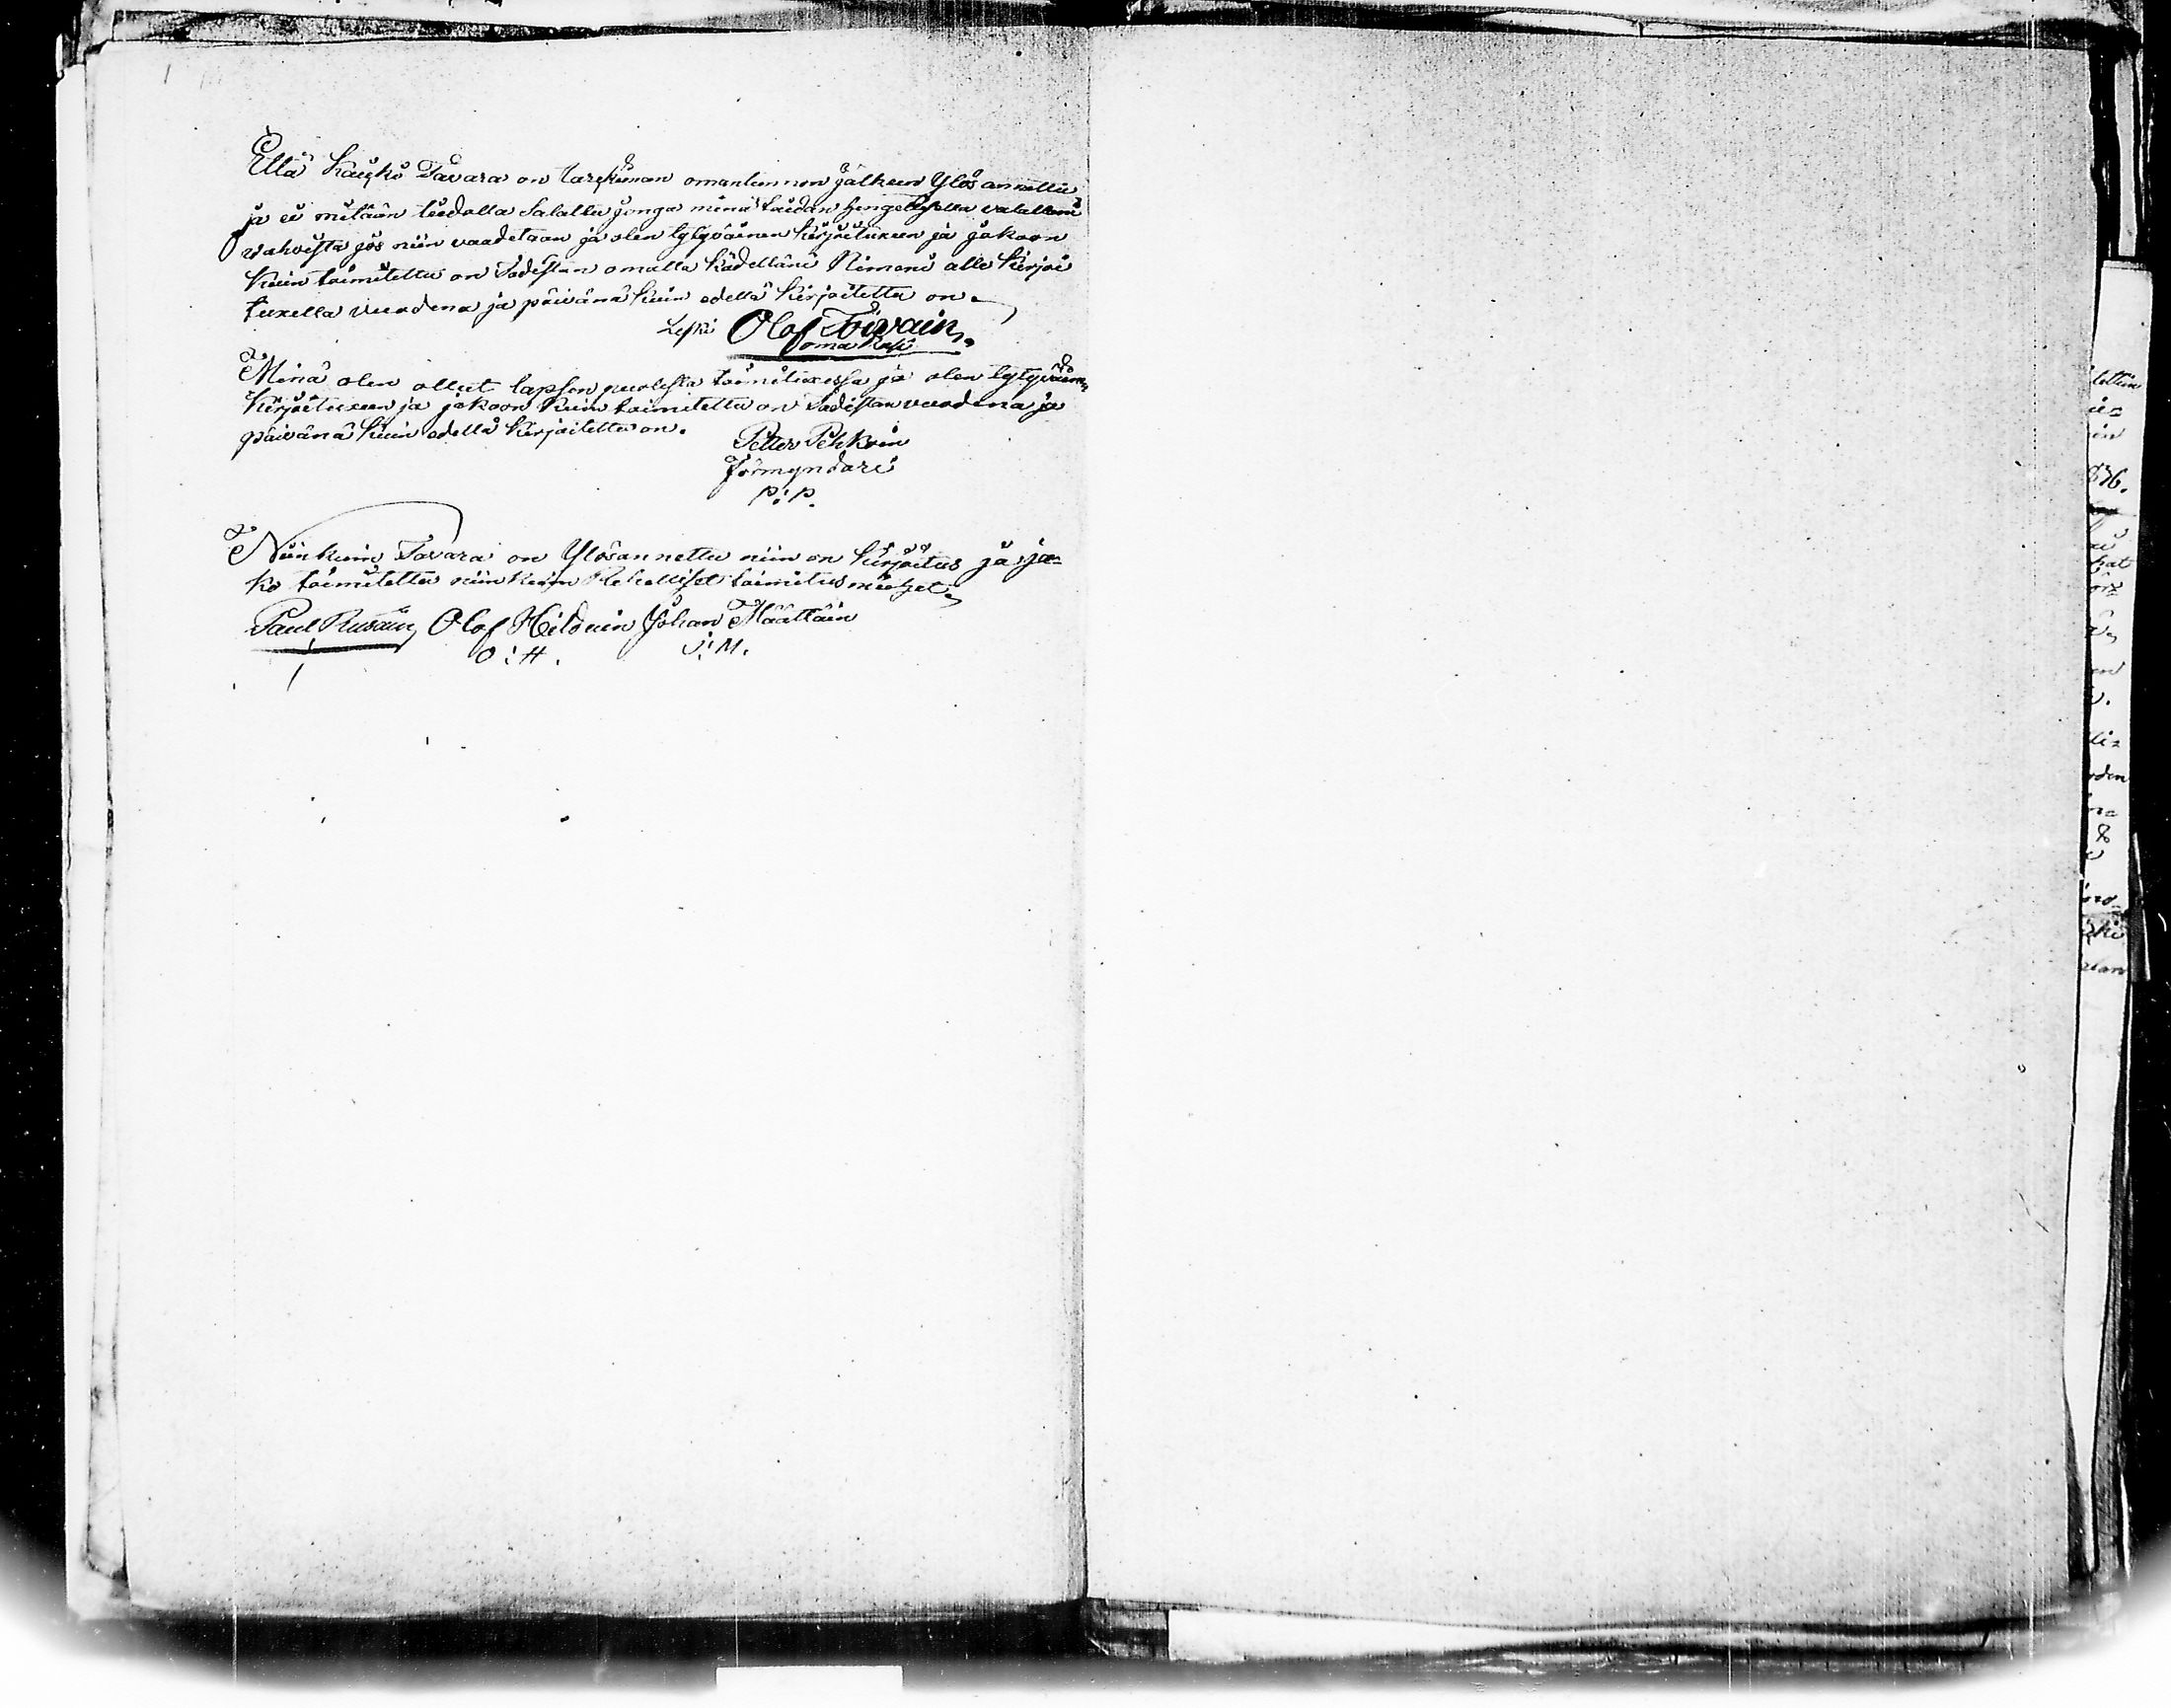 Että Kaikki Tavara on tarkimman omantunnon jälkeen Ylös annettu
ja ei mitään tiedolla Salattu jonga minä taidan hengellisellä valallani
vahvista jos niin vaaditaan ja olen tytyväinen kirjoituxeen ja jakoon
kuin toimitettu on Todistan omalla kädelläni Nimeni alle kirjoi
tuxella vuodena ja päivänä kuin edellä kirjoitettu on.
Leski Olof Toivain,
oma käsi
Minä olen ollut lapsen puolesta toimituxessa ja olen tytyväin,
kirjoituxeen ja jakoon kuin toimitettu on Todistan vuodena ja
päivänä kuin edellä kirjoitettu on.
Petter Pehkoin
Förmyndari
P:P.
Niinkuin Tavara on Ylösannettu niin on kirjoitus ja ja=
ko toimitettu niinkuin Rehelliset toimitus miehet
Paul Rusain, Olof Heiduin Johan Määttäin
O:H. J:M.
836.